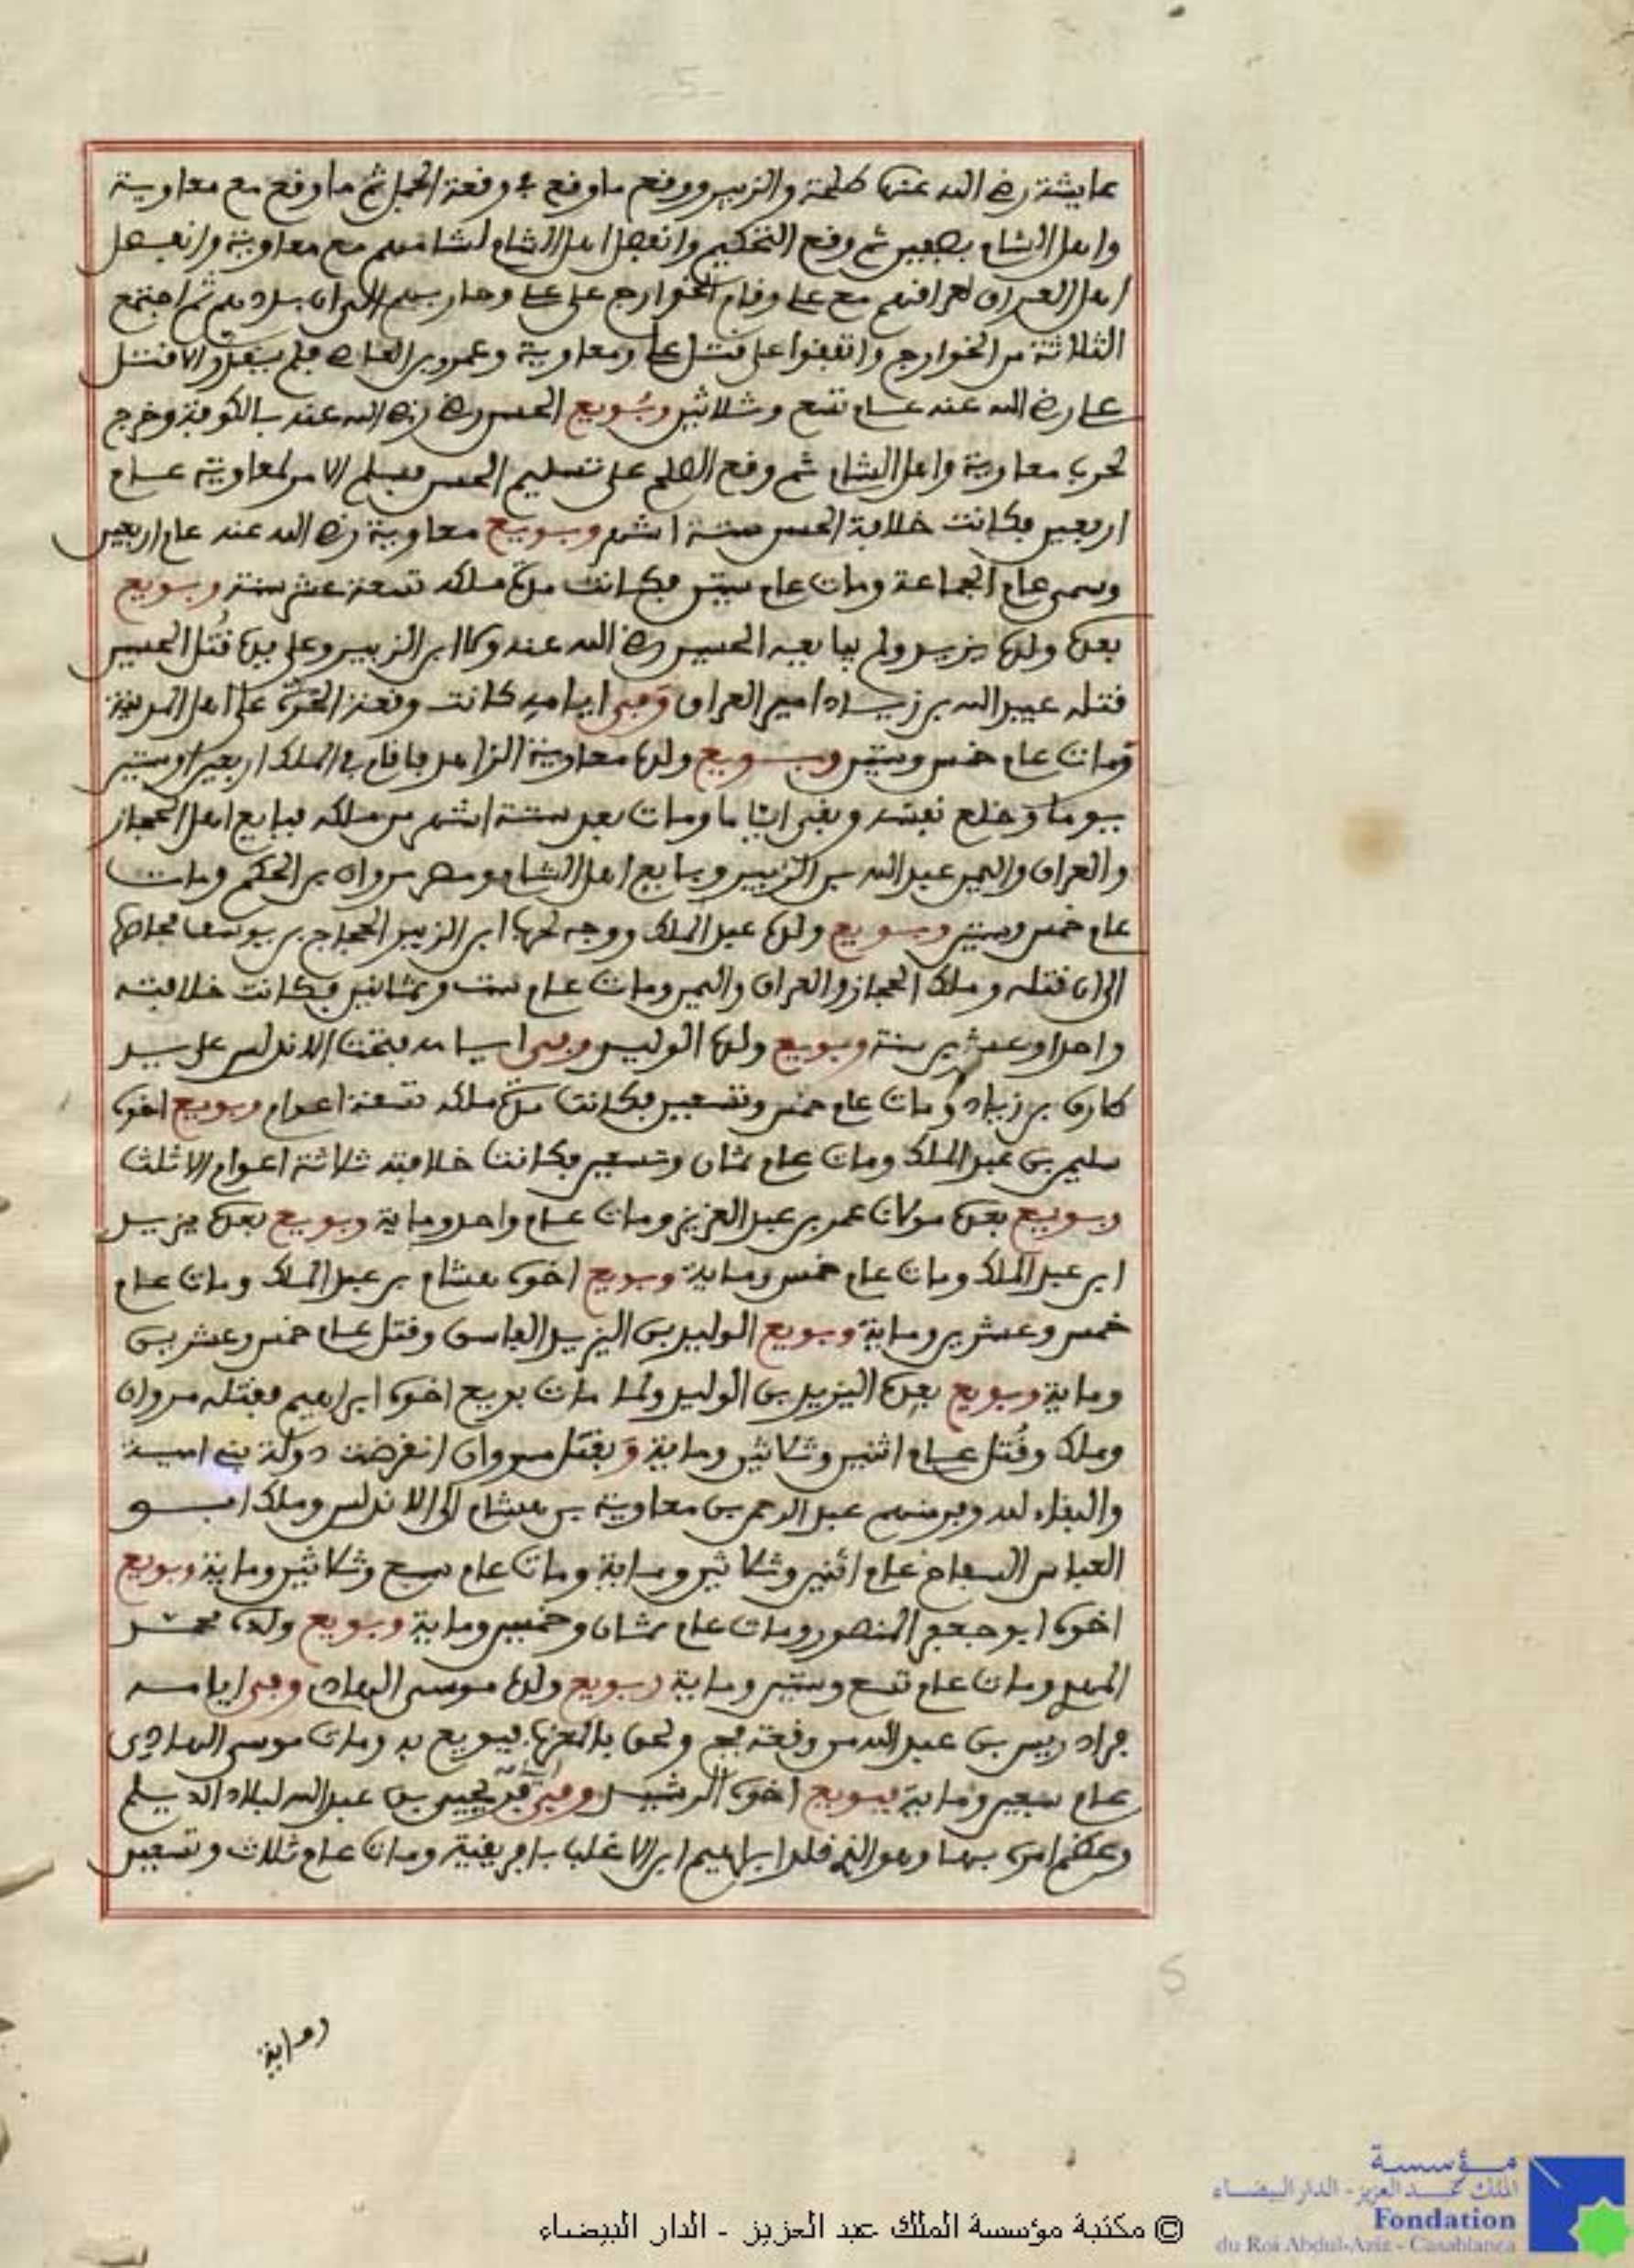 عايشة رضي الله عنها طلحة والزبير ووقع ما وقع في وقعة الجمل ثم ما وقع مع معاوية
واهل الشام بصفين ثم وقع التحكيم وانفصل اهل الشام لشامهم مع معاوية وانفصل
اهل العراق لعراقهم مع علي وقام الخوارج على علي وحاربهم الى ان ثم اجتمع
الثلاثة من الخوارج واتفقوا على قتل علي ومعاوية وعمرو بن العاص فلم الا قتل
علي رضي الله عنه عام تسع وثلاثين وبويع الحسن رضي الله عنه بالكوفة وخرج
لحرب معاوية واهل الشام ثم وقع الصلح على تسليم الحسن فسلم الامر لمعاوية عام
اربعين فكانت خلافة الحسن ستة اشهر وبويع معاوية رضي الله عنه عام اربعين
وسمي عام الجماعة ومات عام ستين فكانت مدة ملكه تسعة عشر سنة وبويع
بعده ولده يزيد ولم يبايعه الحسين رضي الله عنه ولا ابن الزبير وعلى يده قتل الحسين
قتله عبيد الله بن زياد امير العراق وفي ايامه كانت وقعة الحرة على اهل المدينة
ومات عام خمس وستين وبويع ولده معاوية الزاهد فاقام في الملك اربعين او ستين
يوما وخلع نفسه وبقي اياما ومات بعد ستة اشهر من ملكه فبايع اهل الحجاز
والعراق واليمن عبد الله بن الزبير وبايع اهل الشام ومصر مروان بن الحكم ومات
عام خمس وستين وبويع ولده عبد الملك ووجه لحرب ابن الزبير الحجاج بن يوسف
الى ان قتله وملك الحجاز والعراق واليمن ومات عام ست وثمانين فكانت خلافته
واحدا وعشرين سنة وبويع ولده الوليد وفي ايامه فتحت الاندلس على يد
طارق بن زياد ومات عام خمس وتسعين فكانت مدة ملكه تسعة اعوام وبويع اخوه
سليمن بن عبد الملك ومات عام ثمان وتسعين فكانت خلافته ثلاثة اعوام الا ثلث
وبويع بعده مولانا عمر بن عبد العزيز ومات عام واحد وماية وبويع بعده يزيد
ابن عبد الملك ومات عام خمس وماية وبويع اخوه هشام بن عبد الملك ومات عام
خمس وعشرين وماية وبويع الوليد بن اليزيد الفاسق وقتل عام خمس وعشرين
وماية وبويع بعده اليزيد بن الوليد ولما مات بويع اخوه ابراهيم فقتله مروان
وملك وقتل عام اثنين وثلاثين وماية وبقتل مروان انقرضت دولة بني امية
والبقاء لله وفر منهم عبد الرحمن بن معاوية بن هشام الى الاندلس وملك ابو
العباس السفاح عام اثنين وثلاثين وماية ومات عام سبع وثلاثين وماية وبويع
اخوه ابو جعفر المنصور ومات عام ثمان وخمسين وماية وبويع ولده محمد
المهدي ومات عام تسع وستين وماية وبويع ولده موسى الهادي وفي ايامه
فر ادريس بن عبد الله من وقعة فخ ولحق بالمغرب فبويع به ومات موسى الهادي
عام سبعين وماية فبويع اخوه الرشيد وفي فر يحيى بن عبد الله لبلاد الديلم
وعظم امره بها وهو الذي قلد ابراهيم ابن الاغلب بافريقية ومات عام ثلاث وتسعين
وماية
5
© مكتبة مؤسسة الملك عبد العزيز - الدار البيضاء
مؤسسة
الملك عبد العزيز - الدار البيضاء
Fondation
du Roi Abdul-Aziz - Casablanca